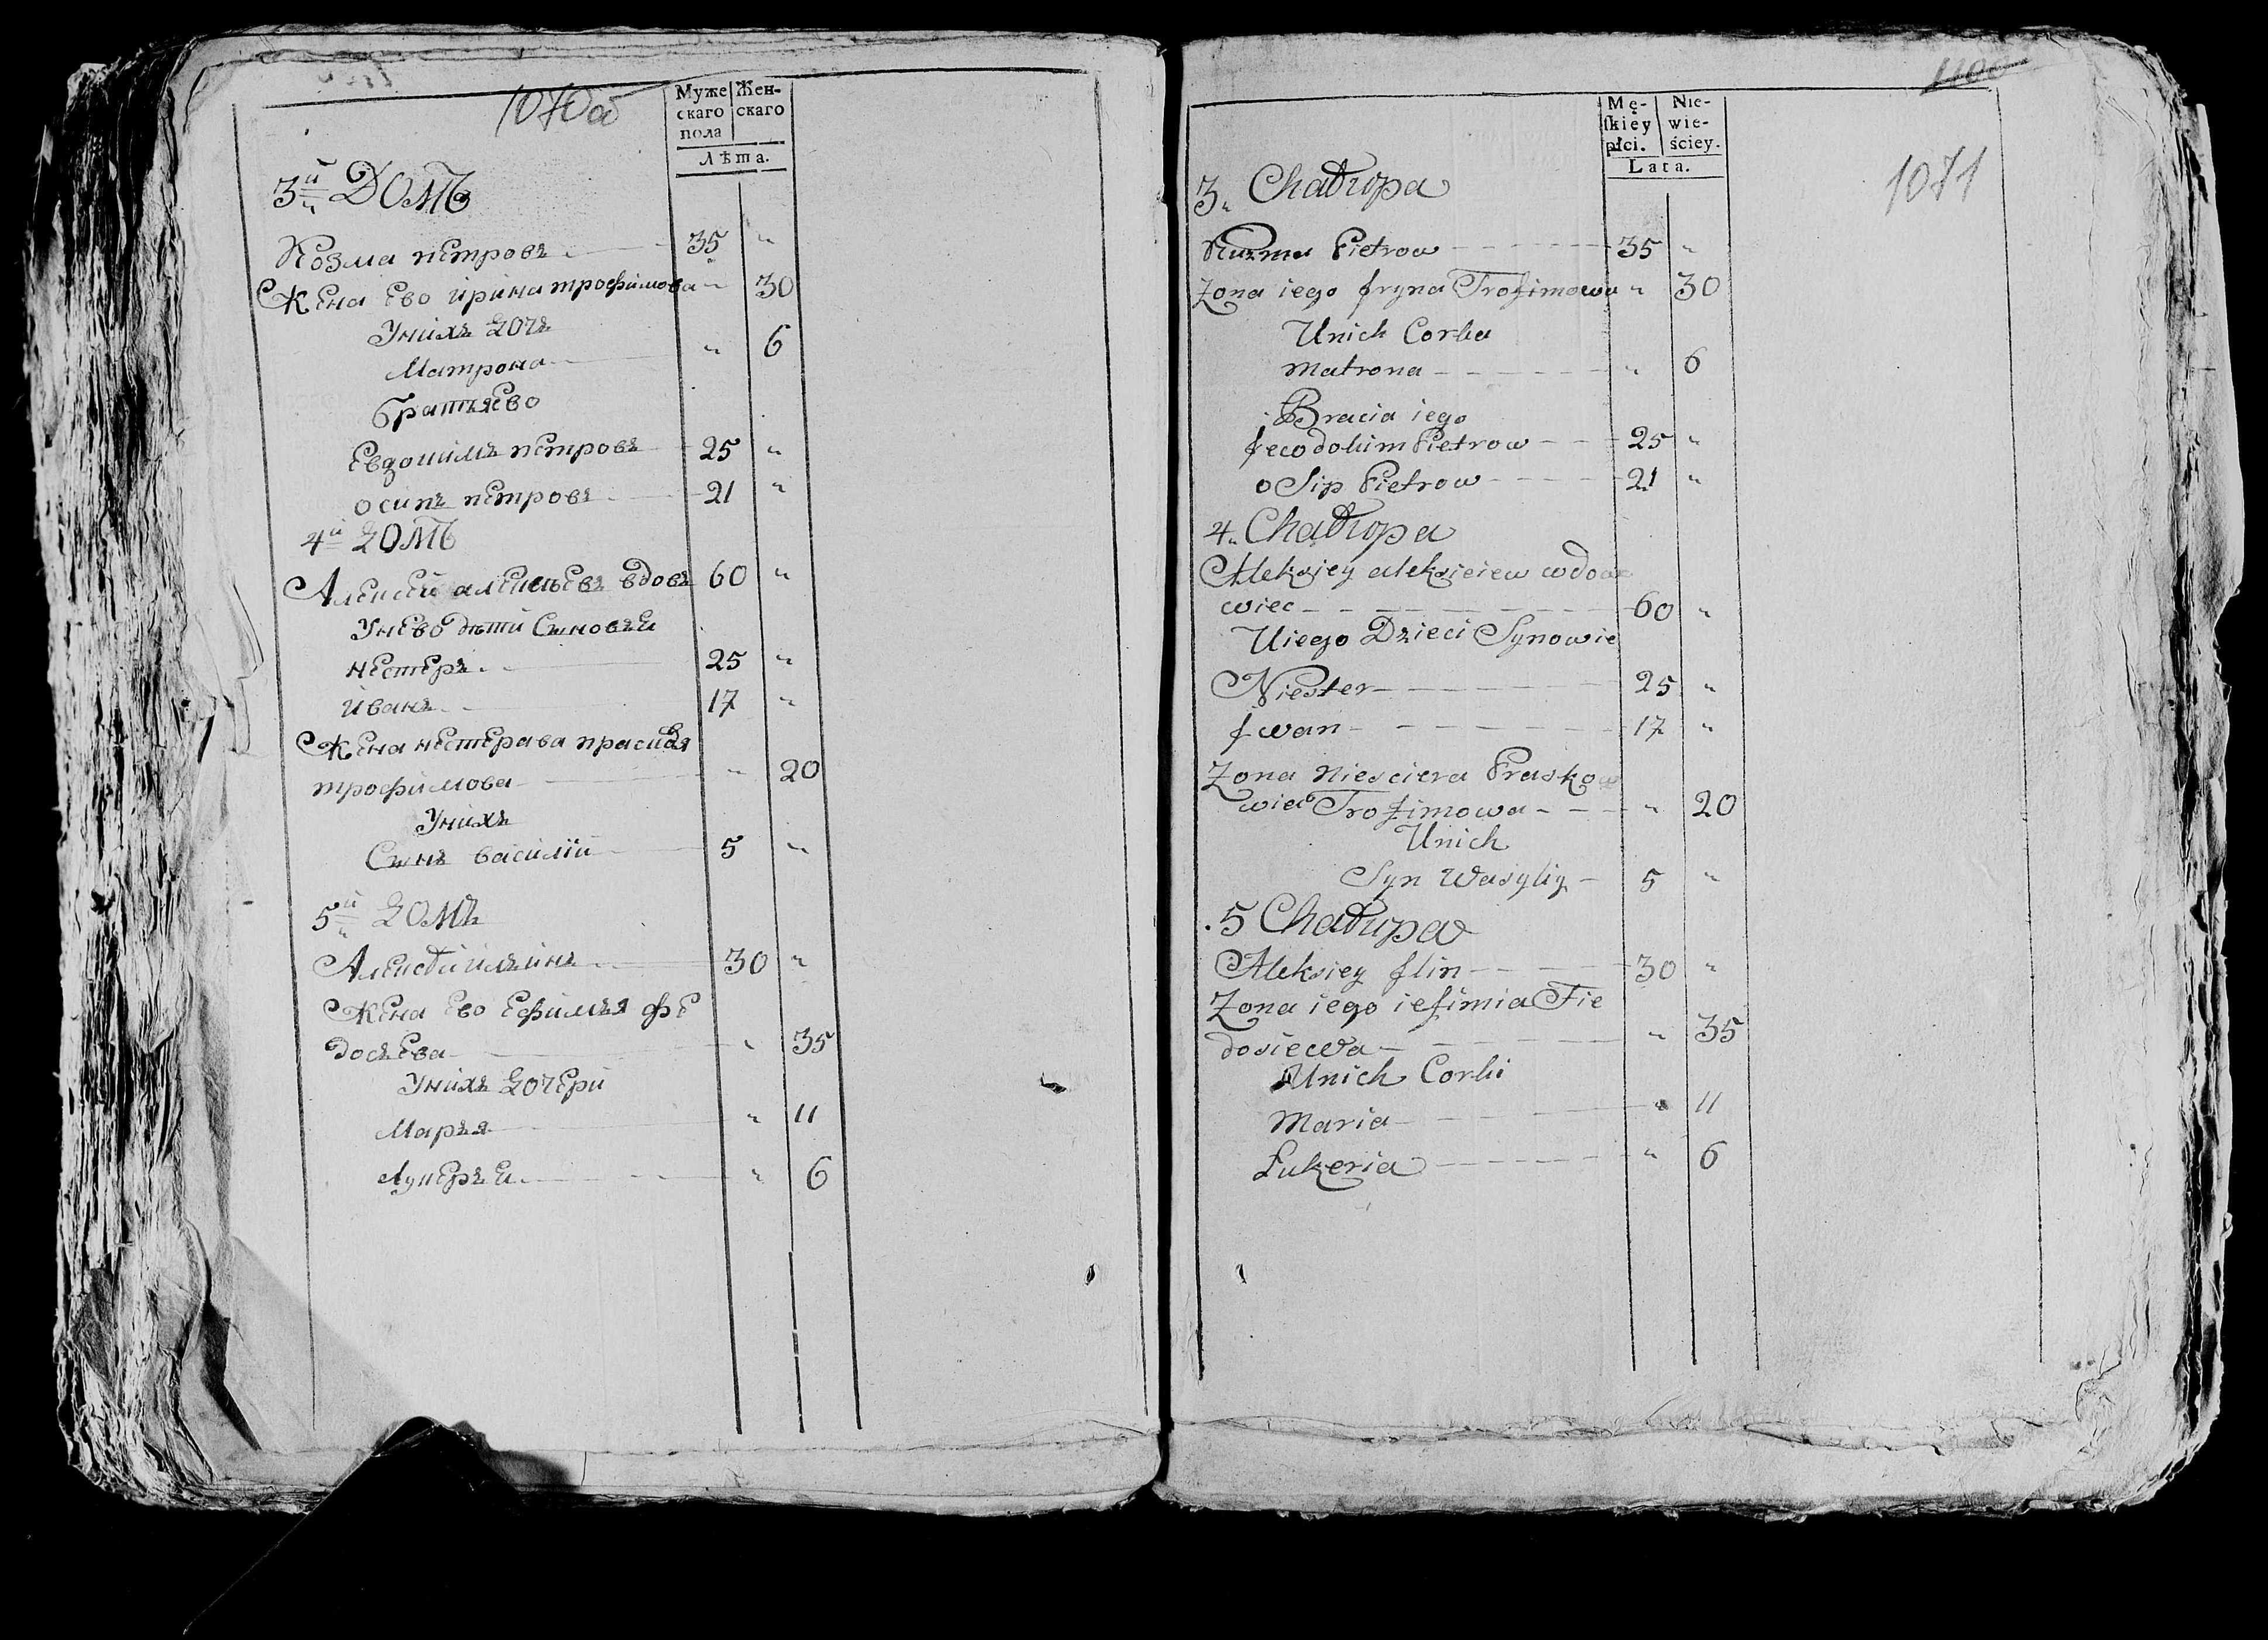 1070об
Муже Жен-
скаго скаго
пола
Лѣта.
3й ДОМЪ
Козма петровъ 35 "
Жена ево ирина трофимова " 30
У нихъ дочь
Матрона " 6
братья ево
Евдокимъ петровъ 25 "
осипъ петровъ 21 "
4й ДОМЪ
Алексей алексѣевъ вдовъ 60 "
У нево дѣти Сыновьи
нестеръ 25 "
Иванъ 17 "
Жена нестерава прасковья
трофимова " 20
У нихъ
Сынъ василiй 5 "
5й ДОМЪ
Алексѣй ильинъ 30 "
Жена ево Ефимья фе
досѣева " 35
У нихъ дочери
Марья " 11
Лукерьи " 6
1100
1071
Mę- Nie-
ſkiey wie-
płci. ściey.
Lata.
3. Chałupa
Kuzma Pietrow 35 "
Zona iego Jryna Trofimowa " 30
Unich Corka
Matrona " 6
Bracia iego
Jewdokim Pietrow 25 "
oSip Pietrow 21 "
4. Chałupa
Aleksiey aleksieiew wdo
wiec 60 "
Uiego Dzieci Synowie
Niester 25 "
Jwan 17 "
Zona Niesciera Prasko
wia Trofimowa " 20
Unich
Syn Wasyliy 5 "
5 Chałupa
Aleksiey Jlin 30 "
Zona iego iefimia Fie
dosiewa " 35
Unich Corki
Maria " 11
Łukeria " 6